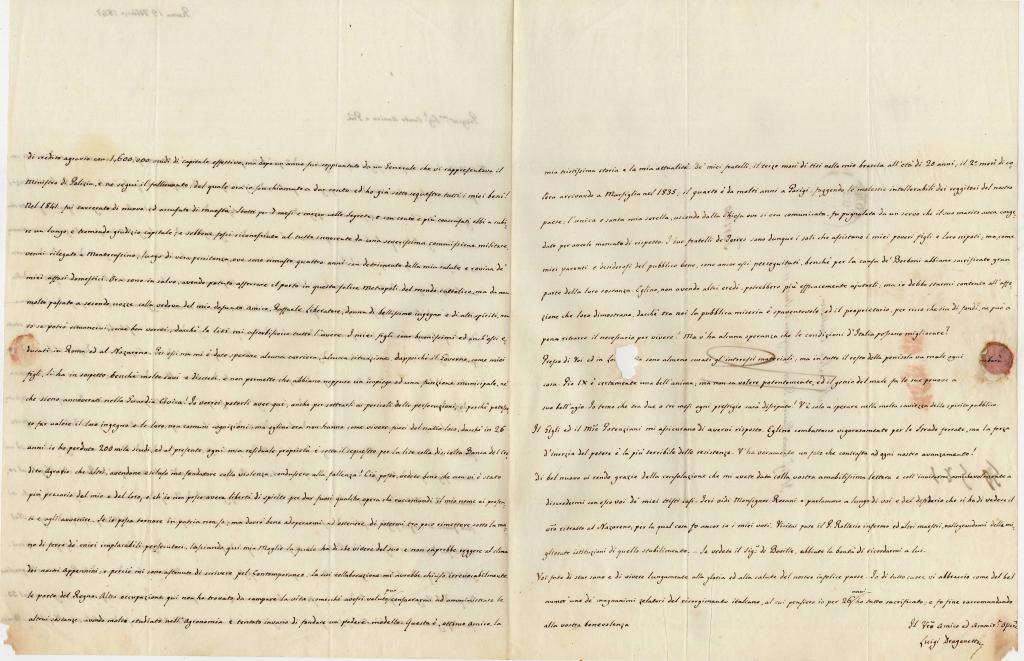 di credito agrario con 1,600,000 scudi di capitale effettivo, ma dopo un anno fui soppiantato da un Generale che vi rappresentava il
Ministro di Polizia, e ne seguì il fallimento, del quale ora io fui chiamato a dar conto ed ho già sotto sequestro tutti i miei beni!
Nel 1841 fui carcerato di nuovo ed accusato di
re un lungo e tremendo giudizio capitale, e sebbene fossi riconosciuto al tutto innocente da una severissima commissione militare,
venni rilegato a Montecassino, luogo di vera penitenza, ove sono rimasto quattro anni con detrimento della mia salute e rovina de'
miei affari domestici. Ora sono in salvo, avendo potuto afferrare il porto in questa felice Metropoli del mondo cattolico, ma da
molto passato a seconde nozze colla vedova del mio defunto Amico, Raffaele Liberatore, donna di bellissimo ingegno e di alti spiriti, non
so se potrò rimanervi, come ben vorrei, dacchè la lite mi assorbirebbe tutto l'avere. I miei figli sono buonissimi ed anch'essi e-
ducati in Roma ed al Nazareno. Per essi non mi è dato sperare alcuna carriera, alcuna situazione, dappoichè il Governo, come miei
figli, li ha in sospetto, benchè molto savi e discreti, e non permette che abbiano neppure un impiego ed una funzione municipale, nè
che sieno annoverati nella Guardia Civica! Io vorrei poterli aver qui, anche per sottrarli ai pericoli delle persecuzioni, e perchè potesse-
ro far valere il loro ingegno e le loro non comuni cognizioni, ma eglino ora non hanno come vivere fuori del natio loco, dacchè in 26
anni io ho perduto 200 mila scudi, ed al presente, ogni mia residuale proprietà è sotto il sequestro per la lite della disciolta Banca del Cre-
dito Agrario che altri, avendone espulso me fondatore colla violenza, condussero alla fallenza! Ciò posto, vedete bene che non vi è stato
più precario del mio e del loro, e ch'io non posso avere libertà di spirito per dar fuori qualche opera che raccomandi il mio nome ai presen-
ti e agli avvenire. Se io possa tornare in patria non so, ma dovrò bene adoperarmi ad ottenere di potermi tra poco rimettere sotto la ma-
no di ferro de' miei implacabili persecutori, lasciando qui mia Moglie la quale ha di che vivere del suo e non saprebbe reggere al clima
dei nostri Appennini, e perciò mi sono astenuto di scrivere pel Contemporaneo. La mia collaborazione mi avrebbe chiuso irrevocabilmente
le porte del Regno. Altra occupazione qui non ho trovato, da campare la vita, comechè avessi voluto pur consacrarmi ad amministrare le
altrui sostanze, avendo molto studiato nell'Agronomia e tentato invano di fondare un podere-modello. Questa è, ottimo Amico, la
mia tristissima storia e la mia attualità. De' miei fratelli, il terzo morì di tisi nelle mie braccia all'età di 20 anni, il 2º morì di co
lera arrivando a Marsiglia nel 1835, il quarto è da molti anni a Parigi, fuggendo le molestie intollerabili dei reggitori del nostro
paese; l'unica e santa mia sorella, uscendo dalla Chiesa ove si era comunicata, fu pugnalata da un servo che il suo marito avea conge
dato per averle mancato di rispetto. I due fratelli de Torres sono dunque i soli che assistano i miei poveri figli e loro nipoti, ma, come
miei parenti e desiderosi del pubblico bene, sono ancor essi perseguitati, benchè per la causa de' Borboni abbiano sacrificato gran
parte delle loro sostanze. Eglino, non avendo altri eredi, potrebbero più efficacemente ajutarli, ma io debbo starmi contento all'affe-
zione che loro dimostrano, dacchè tra noi la pubblica miseria è spaventevole, ed il proprietario, per ricco che sia di fondi, ne può a
pena ritrarre il necessario per vivere! Ma v'ha alcuna speranza che le condizioni d'Italia possano migliorare?
Presso di Voi ed in sono almeno curati gl'interessi materiali, ma in tutto il resto della penisola va male ogni
cosa. Pio IX è certamente una bell'anima; ma non sa volere potentemente, ed il genio del male fa le sue prove a
suo bell'agio. Io temo che tra due o tre mesi ogni prestigio sarà dissipato! V'è solo a sperare nella molta saviezza dello spirito pubblico.
Il Figli ed il Mse Potenziani mi assicurano di avervi risposto. Eglino combattono vigorosamente per le Strade ferrate, ma la forza
d'inerzia del potere è la più terribile delle resistenze. V'ha veramente un fato che contrasta ad ogni nostro avanzamento!
Di bel nuovo vi rendo grazie della consolazione che mi avete data colla vostra amabilissima lettera e coll'invitarmi amichevolmente a
discorrermi con esso voi de' miei tristi casi. Ieri vidi Monsignor Rosani e parlammo a lungo di voi e del desiderio che si ha di vedere il
vro ritratto al Nazareno, per la qual cosa fo ancor io i miei voti. Visitai pure il P. Rolleri infermo ed altri maestri, rallegrandomi della mi-
gliorate istituzioni di quello stabilimento. — Se vedete il Sigr di Bovilla, abbiate la bontà di ricordarmi a lui.
Voi fate di star sano e di vivere lungamente alla gloria ed alla salute del nostro infelice paese. Io di tutto cuore vi abbraccio come del bel
numer'uno de' magnanimi zelatori del risorgimento italiano, al cui pensiero io per 26 anni ho tutto sacrificato, e fo fine raccomandando
alla vostra benevolenza
Il Vro Amico ed Ammirre
Luigi Dragonetti